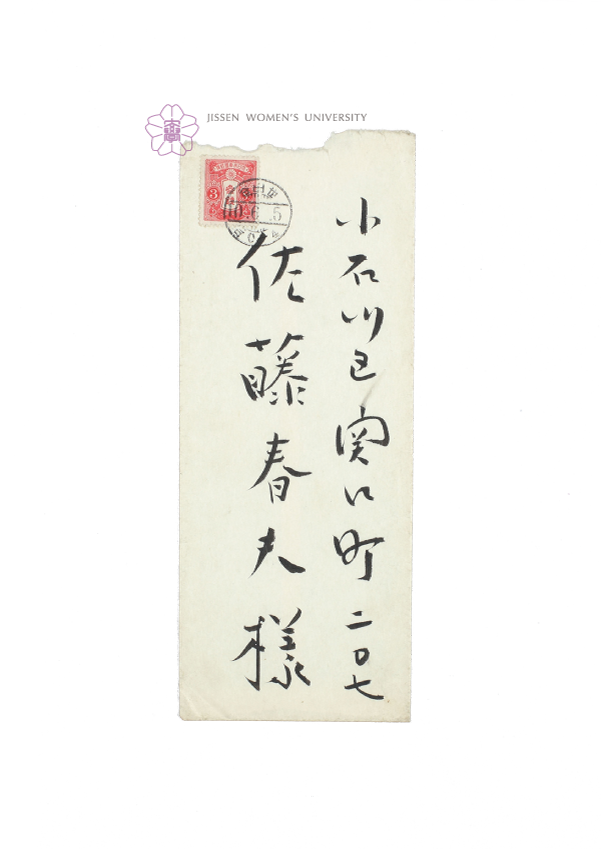 JISSEN WOMEN'S UNIVERSITY
小石川区関口町二〇七
佐藤春夫様
3
10.6.5